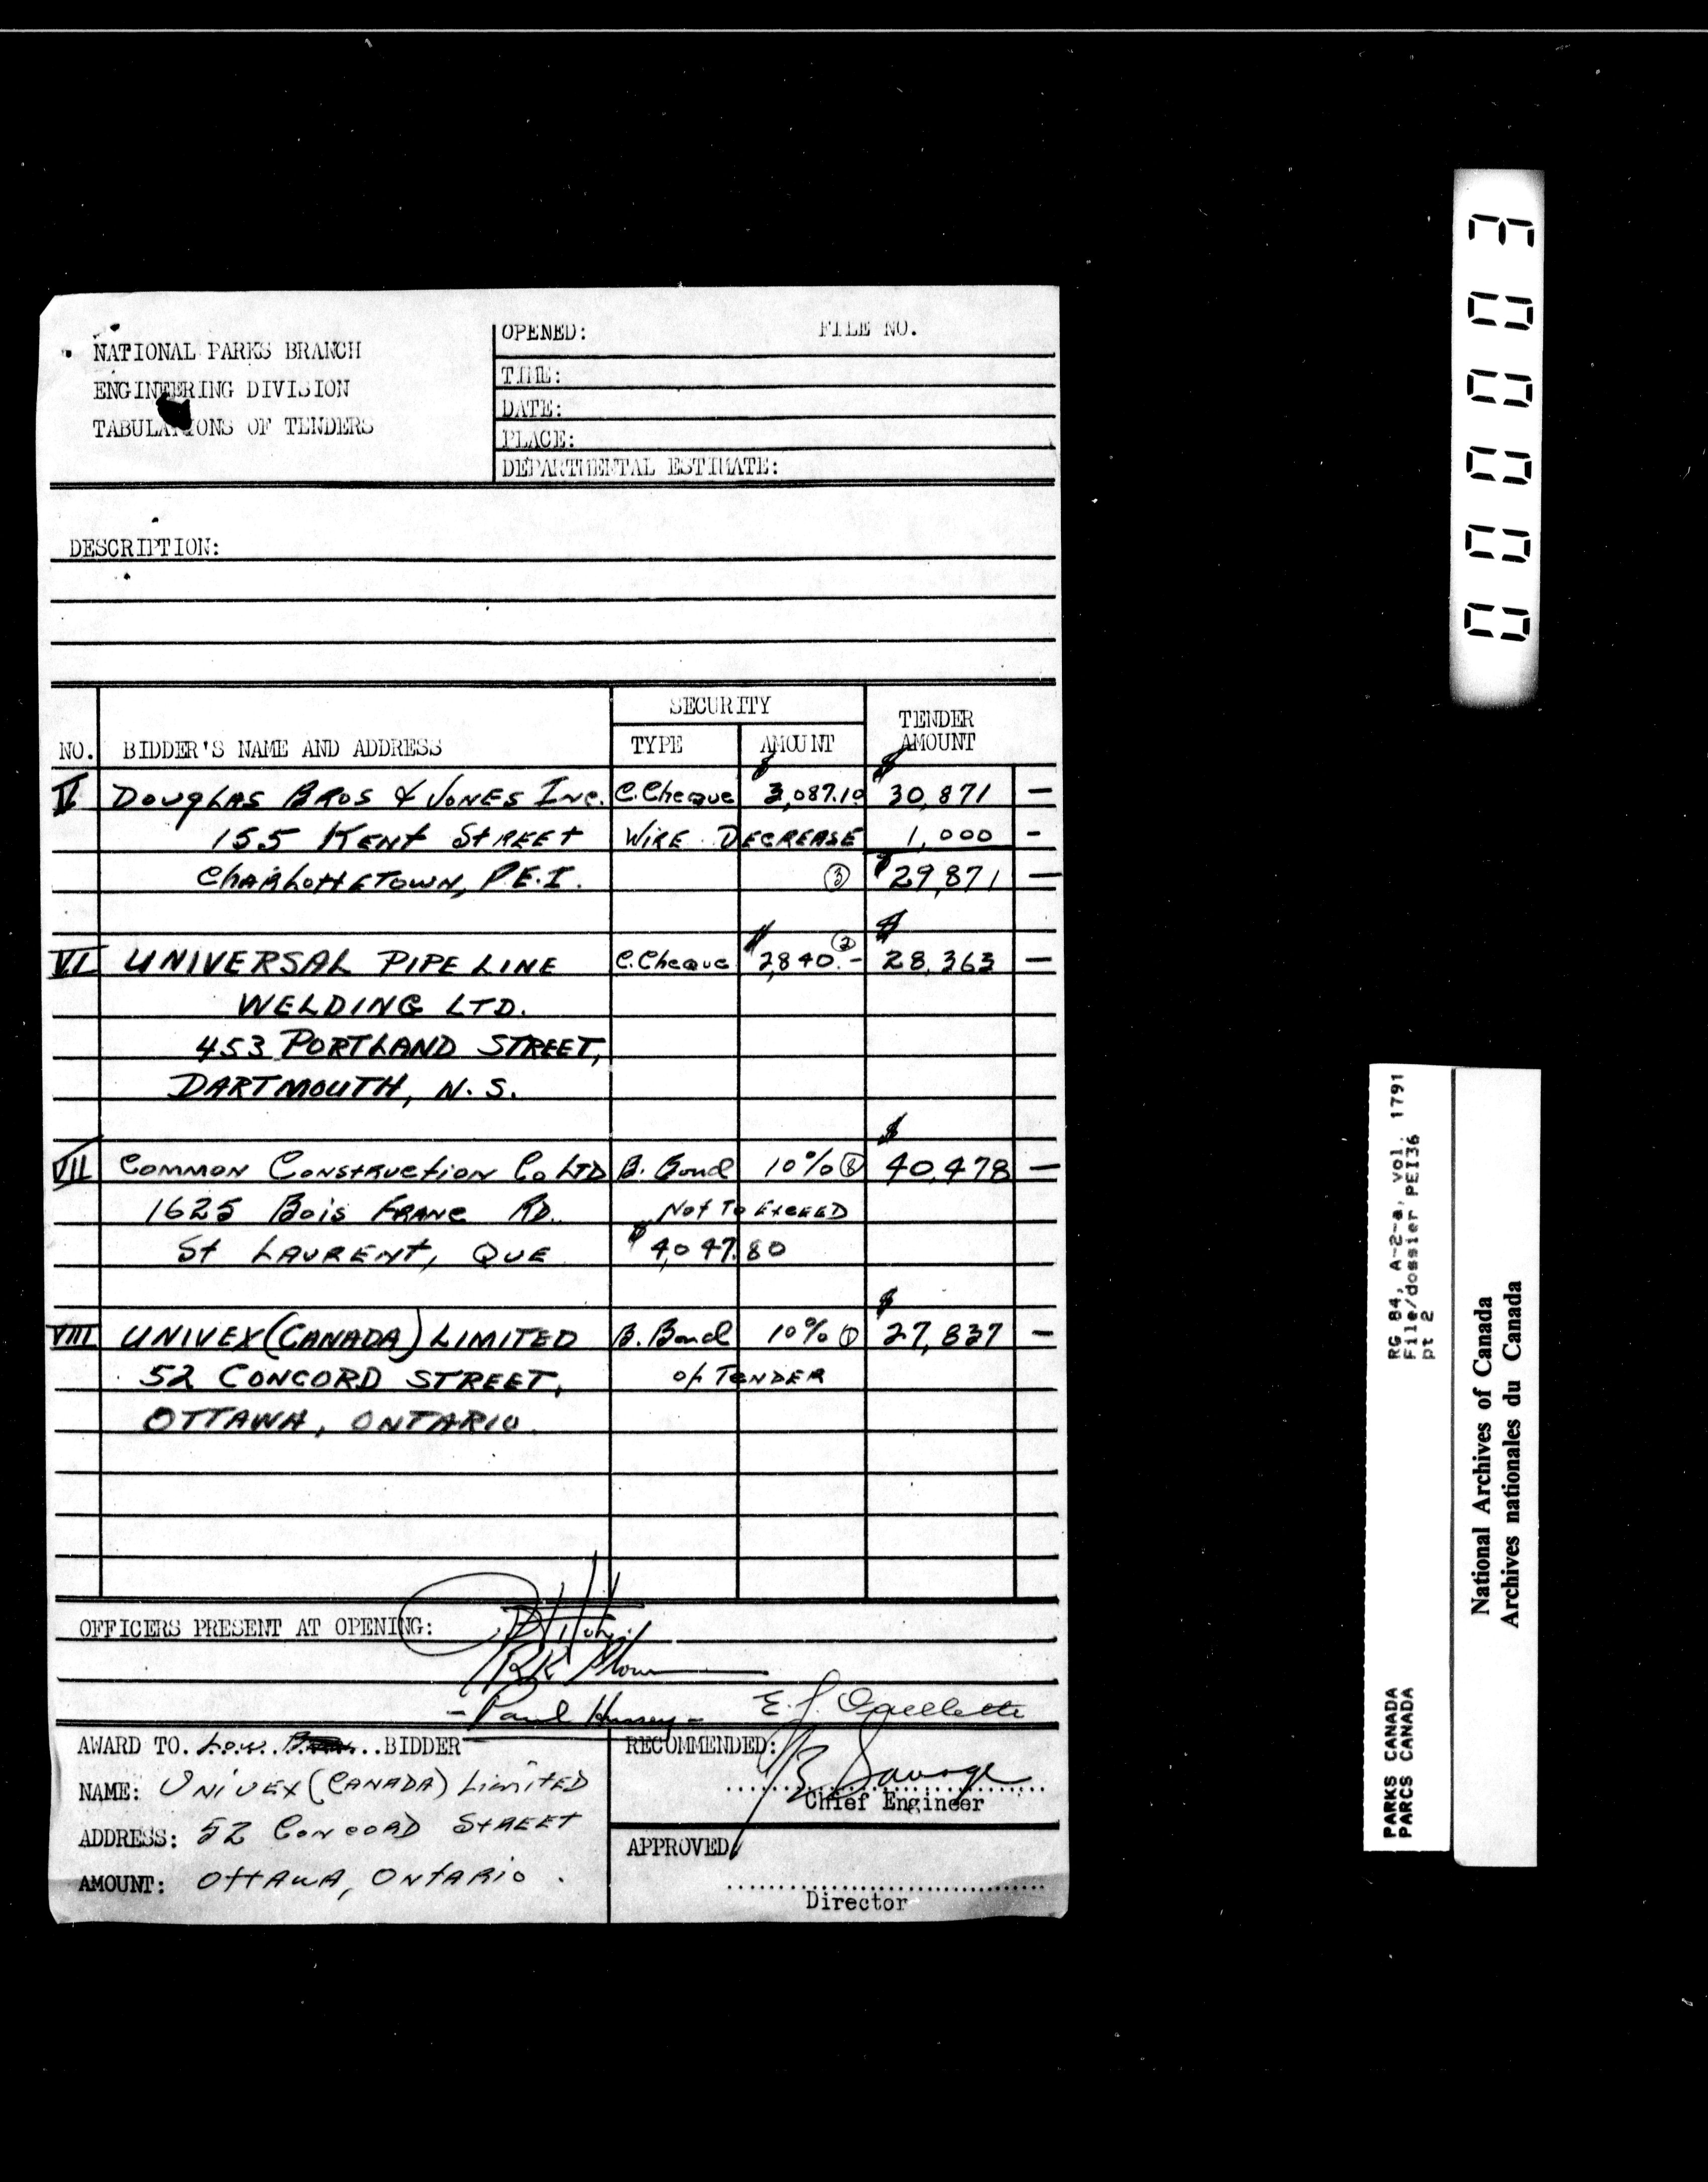 NATIONAL PARKS BRANCH
ENGINEERING DIVISION
TABULATIONS OF TENDERS
OPENED: FILE NO.
TIME:
DATE:
PLACE:
DEPARTMENTAL ESTIMATE:
DESCRIPTION:
NO. BIDDER'S NAME AND ADDRESS SECURITY TYPE AMOUNT TENDER AMOUNT
V DOUGLAS BROS & JONES INC. C. Cheque $3,087.10 $30,871 —
155 KENT STREET WIRE DECREASE 1,000 -
CHARLOTTETOWN, P.E.I. ③ $29,871 —
VI UNIVERSAL PIPE LINE C. Cheque $2,840.- ② $28,363 —
WELDING LTD.
453 PORTLAND STREET,
DARTMOUTH, N.S.
VII COMMON CONSTRUCTION Co LTD B. Bond 10% ⑧ $40,478 —
1625 BOIS FRANC RD. NOT TO EXCEED
ST LAURENT, QUE $4,047.80
VIII UNIVEX (CANADA) LIMITED B. Bond 10% ① $27,837 —
52 CONCORD STREET, of TENDER
OTTAWA, ONTARIO.
OFFICERS PRESENT AT OPENING:
- Paul Hussey - E. J. Ouellette
AWARD TO. Low BIDDER
NAME: UNIVEX (CANADA) LIMITED
ADDRESS: 52 CONCORD STREET
AMOUNT: OTTAWA, ONTARIO.
RECOMMENDED:
Savage
Chief Engineer
APPROVED
Director
000003
RG 84, A-2-a, vol. 1791
File/dossier PEI36
pt 2
PARKS CANADA
PARCS CANADA
National Archives of Canada
Archives nationales du Canada